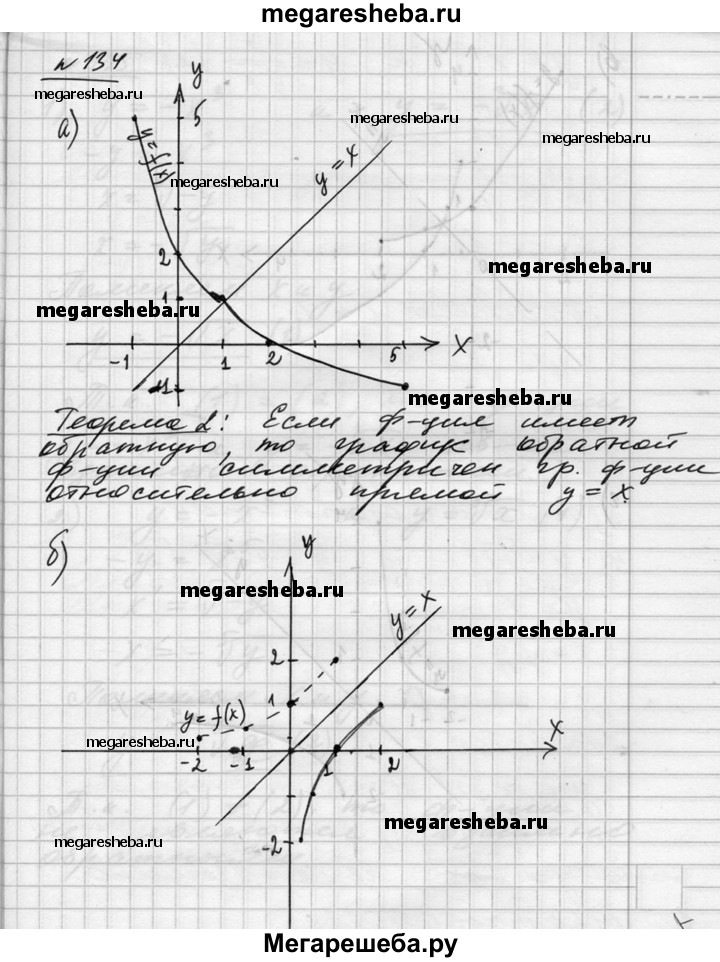 megaresheba.ru
N 134
megaresheba.ru
а)
y
5
megaresheba.ru
megaresheba.ru
y=f(x)
megaresheba.ru
y=x
2
megaresheba.ru
1
megaresheba.ru
-1
1
2
5
x
-1
megaresheba.ru
Теорема 2: Если ф-ция имеет
обратную, то график обратной
ф-ции симметричен гр. ф-ции
относительно прямой y=x.
б)
y
megaresheba.ru
y=x
megaresheba.ru
2
1
y=f(x)
megaresheba.ru
x
-2
-1
1
2
megaresheba.ru
megaresheba.ru
-2
Мегарешеба.ру